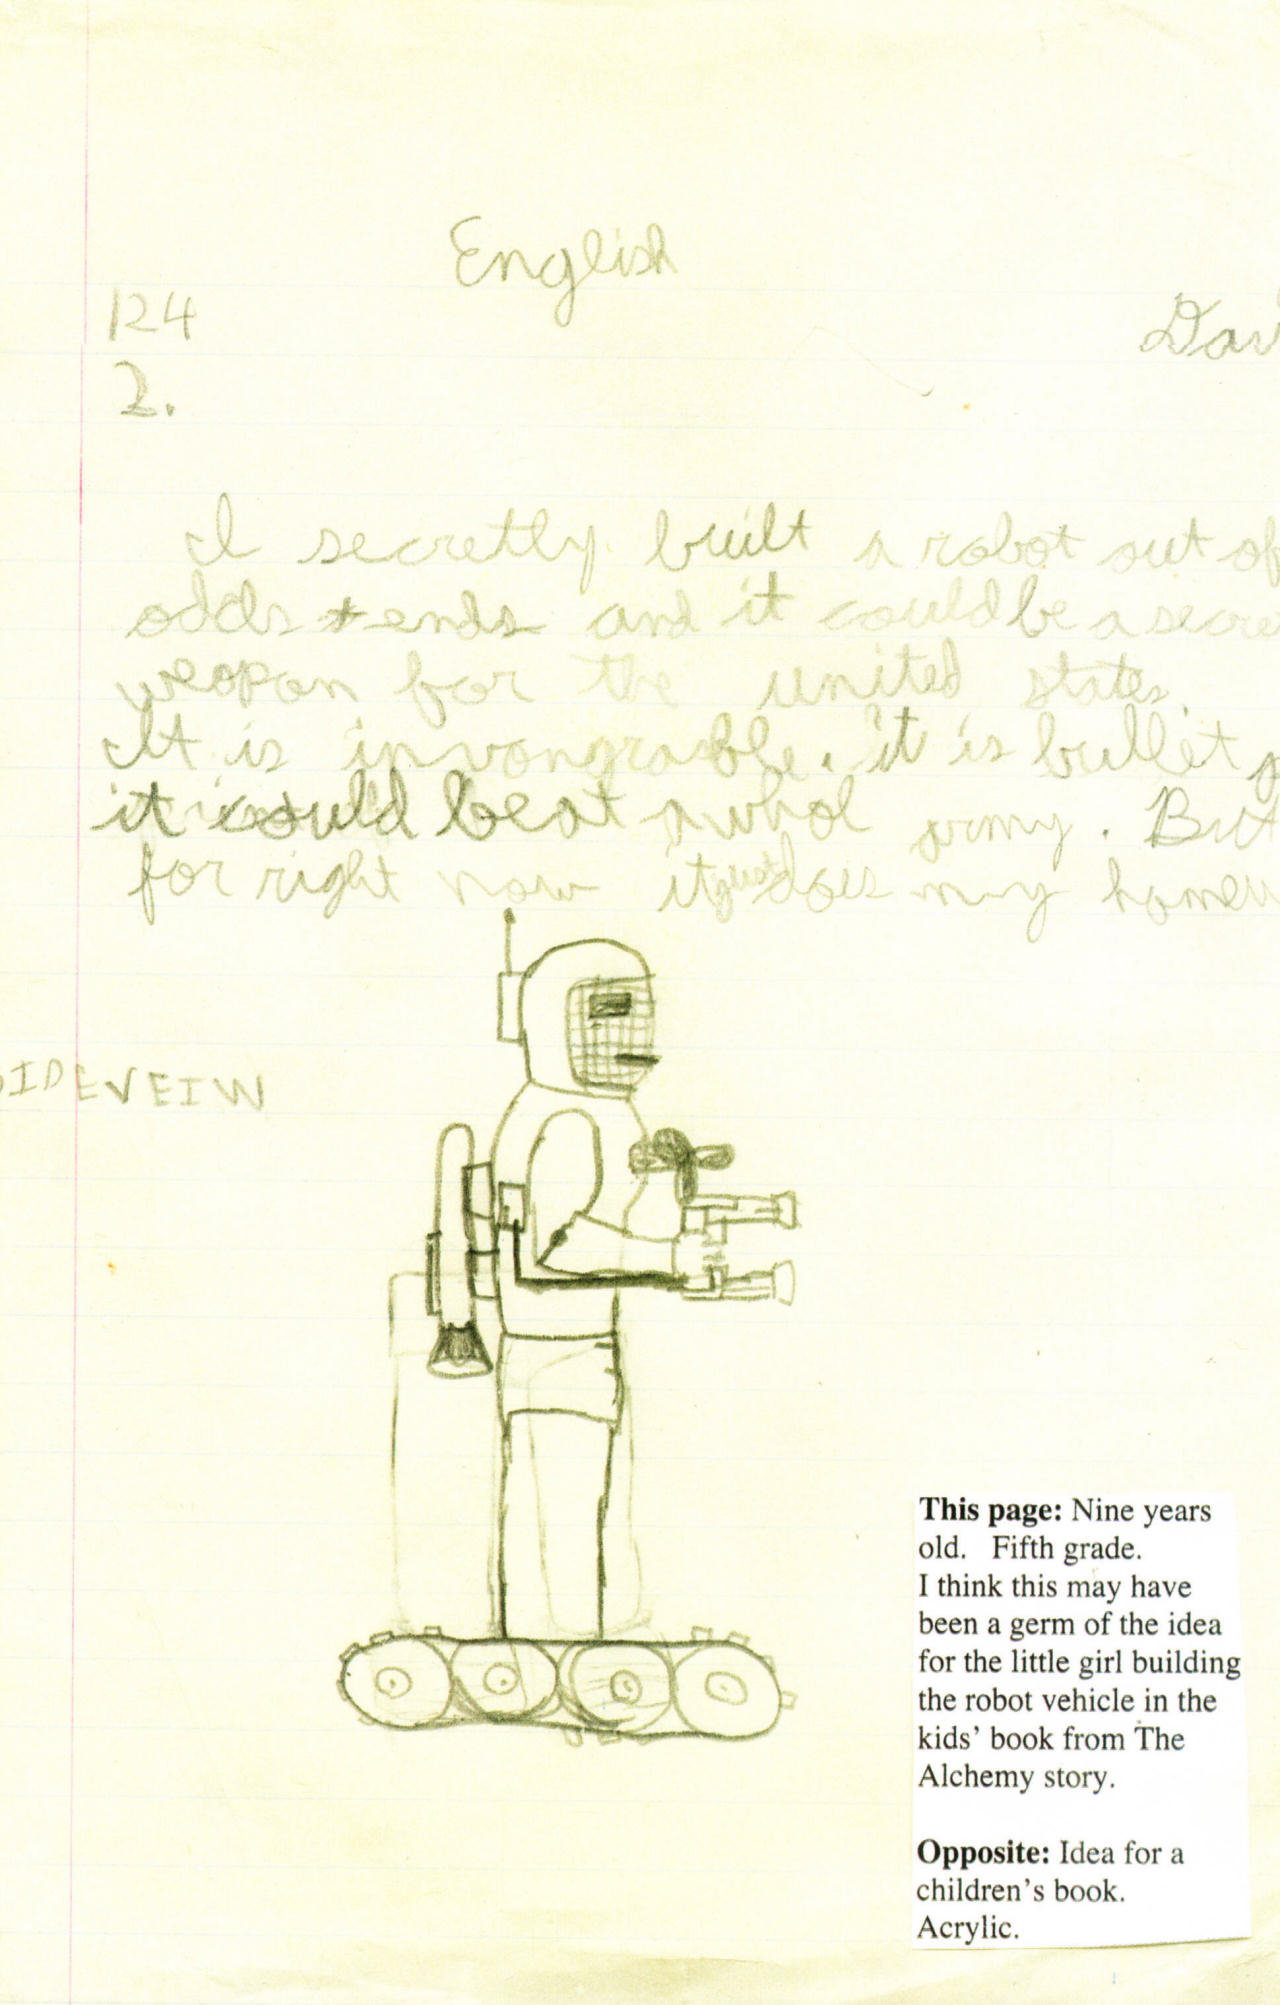 English
124
Dav
2.
I secretly built a robot out of
odds + ends and it could be a secre
weapon for the united states.
It is invongrable. it is bullet p
it could beat a whol army. But
for right now it just does my homew
SIDEVEIW
This page: Nine years
old. Fifth grade.
I think this may have
been a germ of the idea
for the little girl building
the robot vehicle in the
kids' book from The
Alchemy story.
Opposite: Idea for a
children's book.
Acrylic.